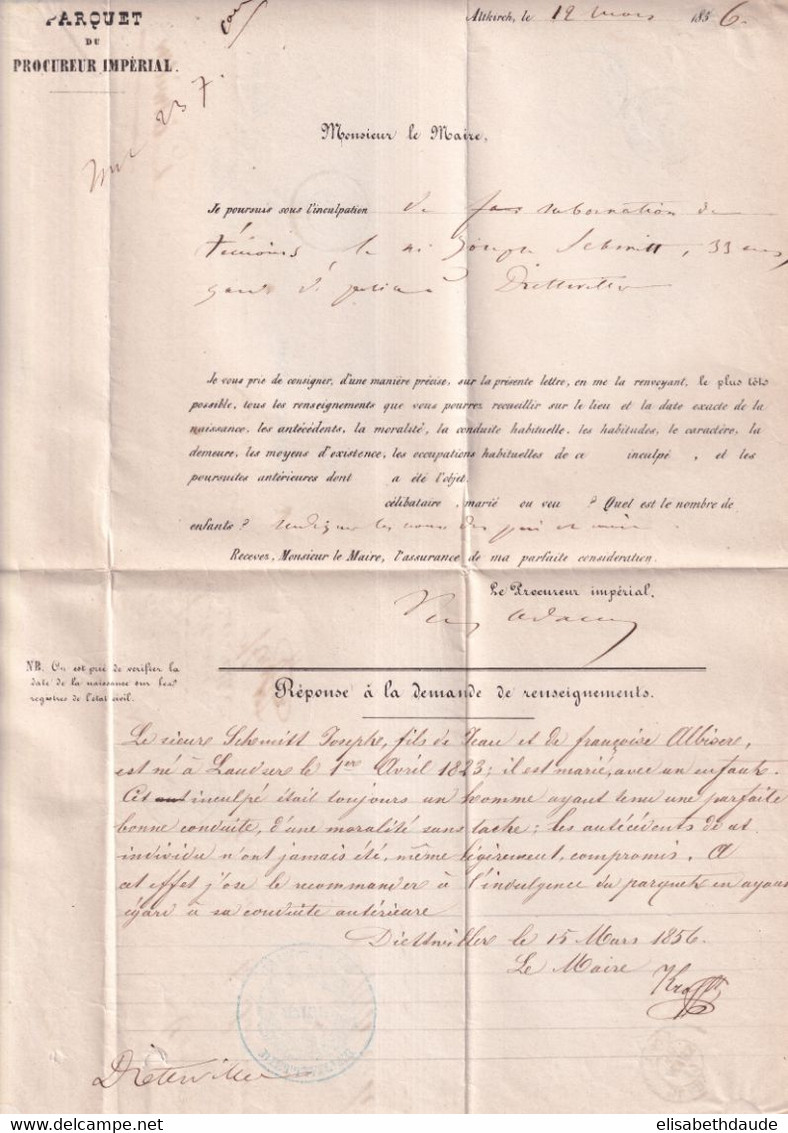 PARQUET
DU
PROCUREUR IMPÉRIAL.
Altkirch, le 12 mars 1856.
237
Monsieur le Maire,
Je poursuis sous l'inculpation de subornation de
témoins, le né Joseph Schmitt, 33 ans,
garde à Dietwiller
Je vous prie de consigner, d'une manière précise, sur la présente lettre, en me la renvoyant, le plus tôts
possible, tous les renseignements que vous pourrez recueillir sur le lieu et la date exacte de la
naissance, les antécédents, la moralité, la conduite habituelle, les habitudes, le caractère, la
demeure, les moyens d'existence, les occupations habituelles de c inculpé , et les
poursuites antérieures dont a été l'objet.
célibataire, marié ou veu ? Quel est le nombre de
enfants? indiquer les noms des père et mère.
Recevez, Monsieur le Maire, l'assurance de ma parfaite consideration.
Le Procureur impérial,
NB. On est prié de verifier la
date de la naissance sur les
registres de l'état civil.
Réponse à la demande de renseignements.
Le sieure Schmitt Josephe, fils de Jean et de françoise Albisere,
est né à Landsere le 1er Avril 1823; il est marié, avec un enfants.
Cet inculpé était toujours un homme ayant tenu une parfaite
bonne conduite, d'une moralité sans tache; les antécédents de cet
individu n'ont jamais été, même légèrement, compromis. A
cet effet j'ose le recommander à l'indulgence du parquet en ayant
égard à sa conduite antérieure
Diettwiller le 15 Mars 1856.
Le Maire
Dietwiller
elisabethdaude